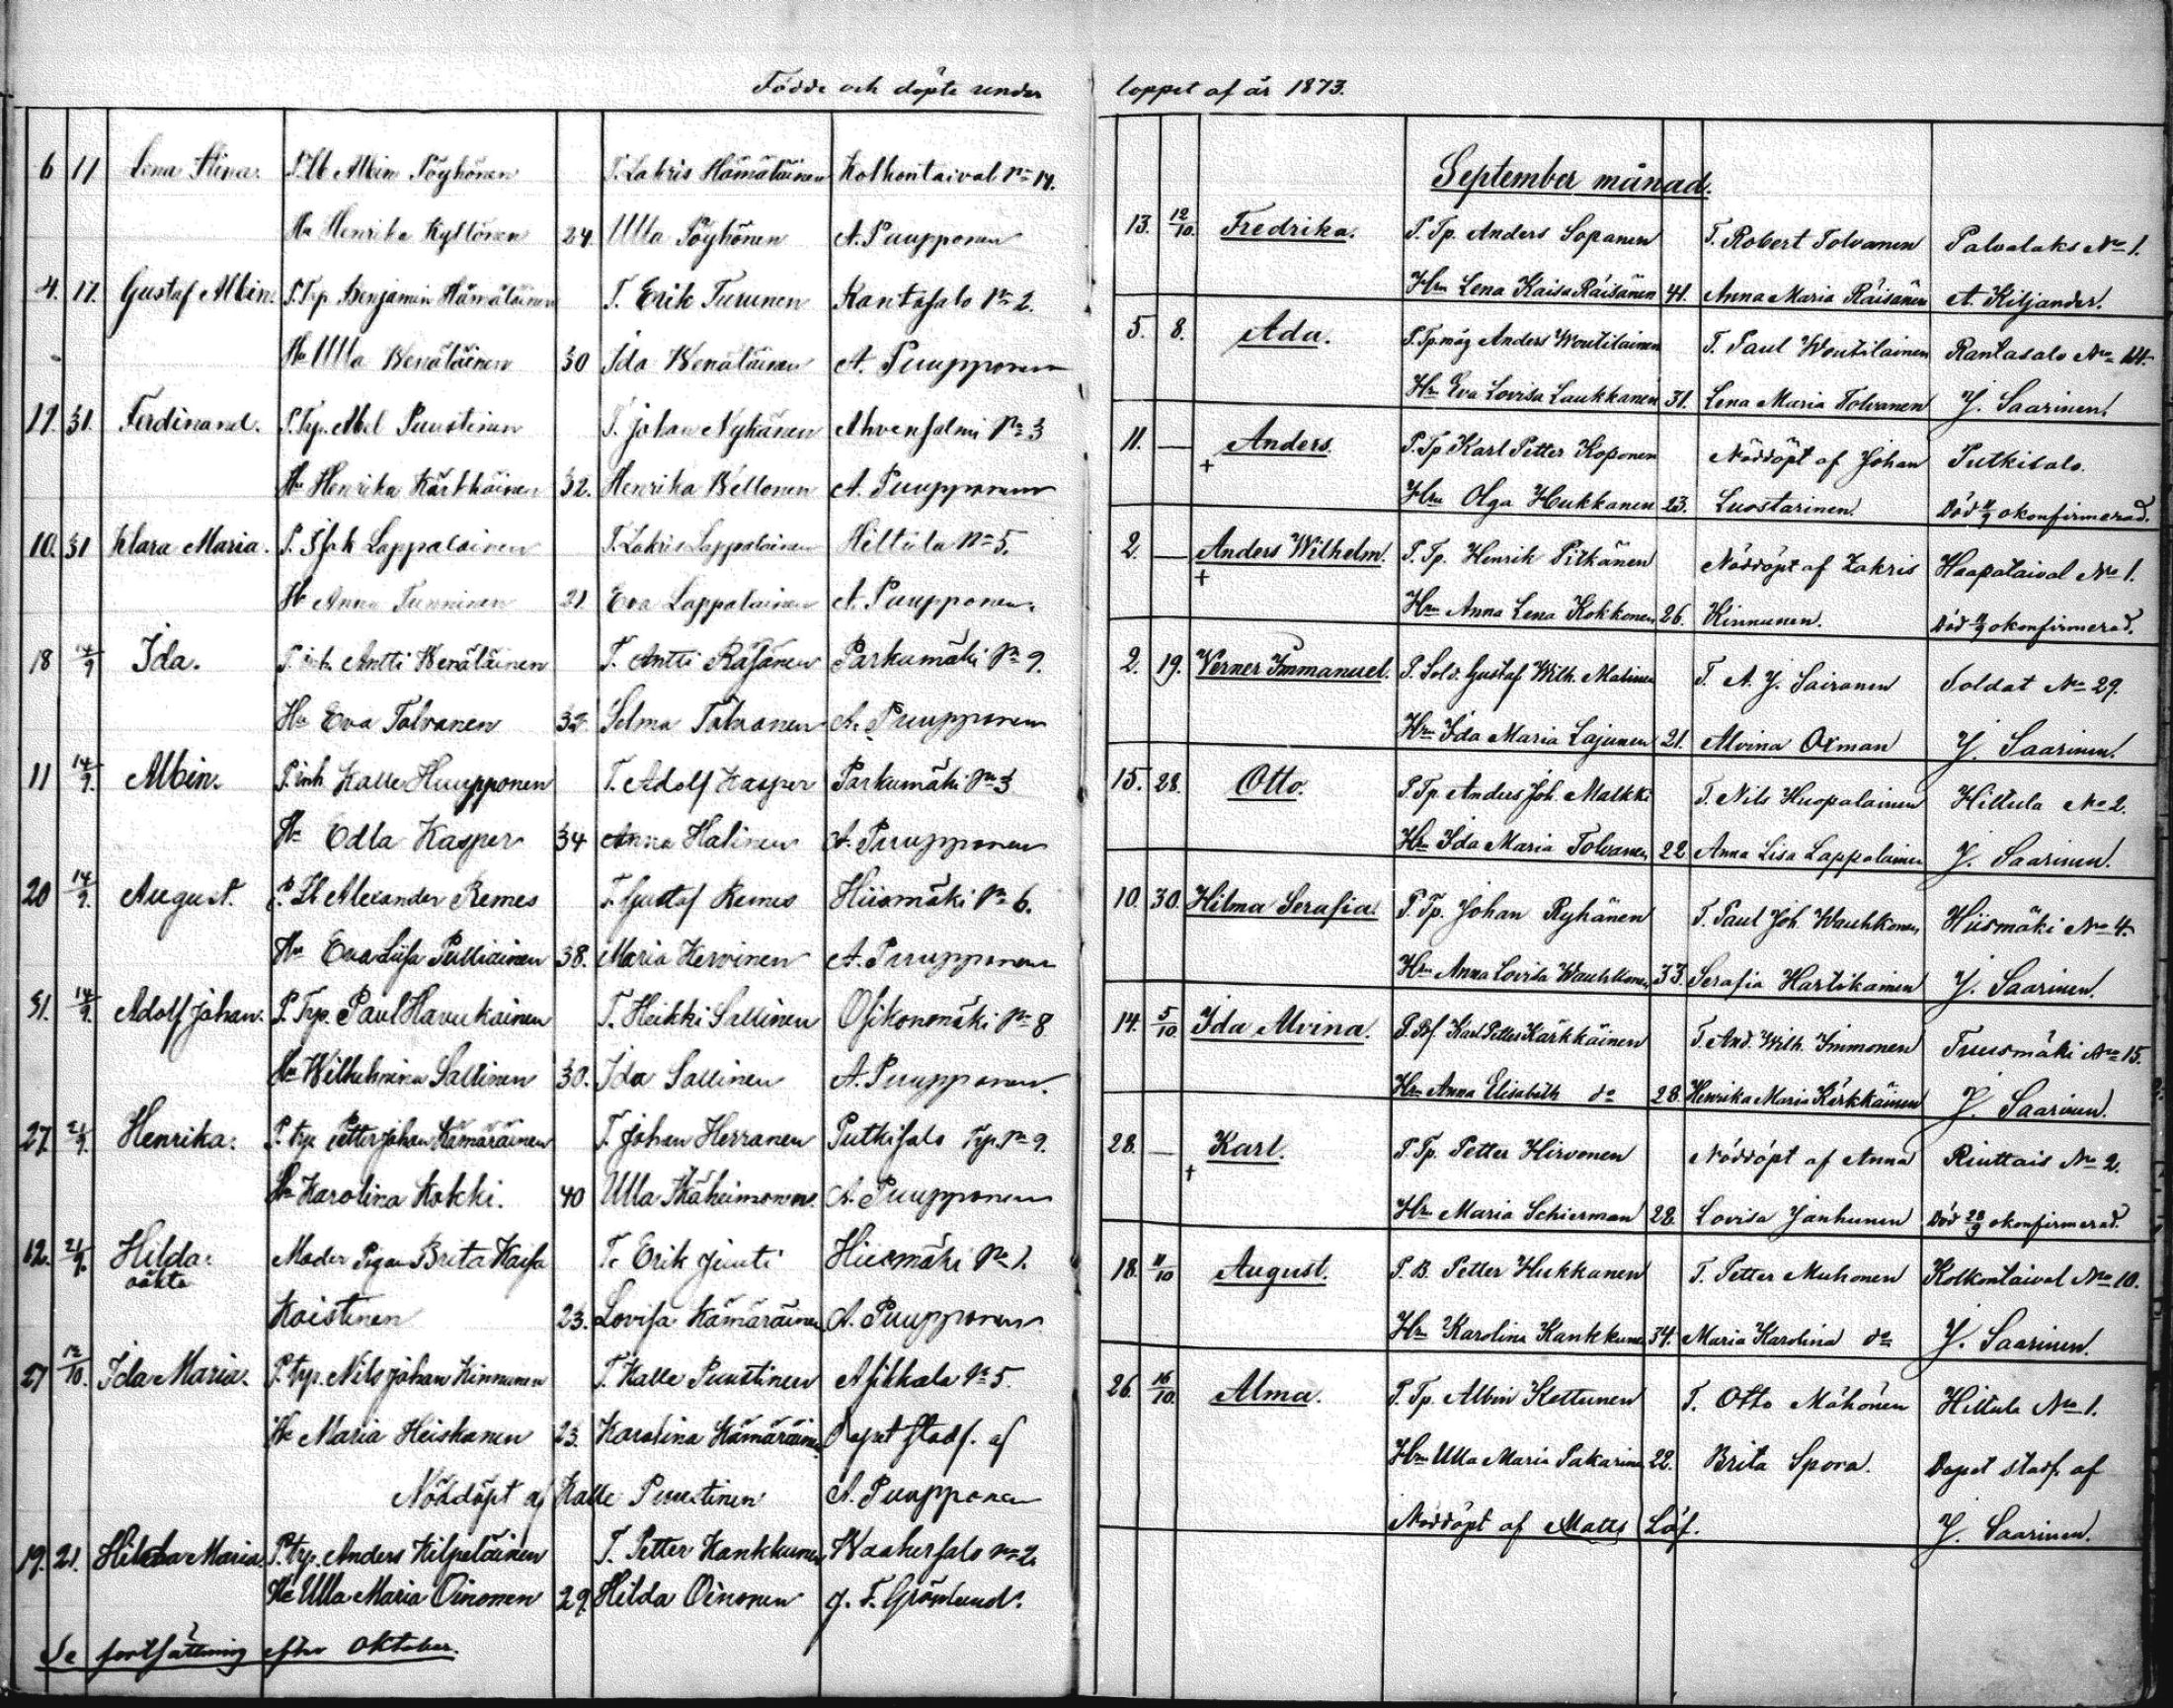 Födde och döpte under
6 11 Lena Stina. P. Albin Pöyhönen T. Zakris Hämäläinen Kolkontaival No 14.
Hu Henrika Kyllönen 24 Ulla Pöyhönen A. Puupponen
4. 17. Gustaf Albin. P. Trp Benjamin Hämäläinen T. Erik Turunen Rantasalo No 2.
Hu Ulla Wenäläinen 30 Ida Wenäläinen A. Puupponen
17. 31. Ferdinand. P. Trp. Abel Puustinen T. Johan Nykänen Ahvensalmi No 3
Hu Henrika Kärkkäinen 32. Henrika Wellonen A. Puupponen
10. 31 Klara Maria. P. Isak Lappalainen T. Zakris Lappalainen Hiltula No 5.
Hu Anna Tunninen 21 Eva Lappalainen A. Puupponen.
18 14/9 Ida. P. inh. Antti Wenäläinen T. Antti Räsänen Parkumäki No 9.
Hu Eva Tolvanen 32 Selma Tolvanen A. Puupponen
11 14/9. Albin. P. inh Kalle Huupponen T. Adolf Kasper Parkumäki No 3
Hu Edla Kasper 34 Anna Halinen A. Puupponen
20 14/9. August. P. Alexander Remes T. Gustaf Remes Hiismäki No 6.
Hu Eva Liisa Pulliainen 38. Maria Kervinen A. Puupponen
31. 14/9. Adolf Johan. P. Trp. Paul Havukainen T. Heikki Sallinen Osikonmäki No 8
Hu Wilhelmina Sallinen 30. Ida Sallinen A. Puupponen.
27. 21/9. Henrika. P. trp Petter Johan Kämäräinen T. Johan Herranen Putkisalo Trp. No 9.
Hu Karolina Kokki. 40 Ulla Käheimonen A. Puupponen
12. 21/9. Hilda. Moder Pigan Brita Kaisa T. Erik Juuti Hiismäki No 1.
oäkta
Koistinen 23. Lovisa Kämäräinen A. Puupponen
27 12/10. Ida Maria. P. trp. Nils Johan Kinnunen T. Kalle Puustinen Asikkala No 5.
Hu Maria Heiskanen 23. Karolina Kämäräinen Dopet stadf. af
Nöddöpt af Kalle Puustinen A. Puupponen
19. 21. Hilda Maria P. trp. Anders Kilpeläinen T. Petter Kankkunen Waahersalo No 2.
Hu Ulla Maria Oinonen 29. Hilda Oinonen G. F. Grönlund.
Se fortsättning efter Oktober.
loppet af år 1873.
September månad.
13. 12/10. Fredrika. P. Tp. Anders Sopanen T. Robert Tolvanen Palvalaks No 1.
Hru Lena Kaisa Räisänen 41. Anna Maria Räisänen A. Kiljander.
5. 8. Ada. P. Tp. måg Anders Woutilainen T. Paul Woutilainen Rantasalo No 14.
Hru Eva Lovisa Laukkanen 31. Lena Maria Tolvanen J. Saarinen.
11. — + Anders. P. Tp Karl Petter Koponen Nöddöpt af Johan Putkisalo.
Hru Olga Hukkanen 23. Luostarinen. Död 11/9 okonfirmerad.
2. — + Anders Wilhelm. P. Tp. Henrik Pitkänen Nöddöpt af Zakris Haapataival No 1.
Hru Anna Lena Kokkonen 26. Kinnunen. Död okonfirmerad.
2. 19. Verner Immanuel. P. Sold. Gustaf Wilh. Malinen T. A. J. Sairanen Soldat No 29.
Hru Ida Maria Lajunen 21. Alvina Oxman J. Saarinen.
15. 28. Otto. P. Tp. Anders Joh. Malkki T. Nils Huopalainen Hiltula No 2.
Hru Ida Maria Tolvanen 22 Anna Lisa Lappalainen J. Saarinen.
10. 30. Hilma Serafia. P. Tp. Johan Ryhänen T. Paul Joh Wauhkonen Hiismäki No 4.
Hru Anna Lovisa Wauhkonen 33. Serafia Hartikainen J. Saarinen.
14. 5/10 Ida Alvina. P. Karl Petter Kärkkäinen T. And. Wilh. Immonen Tuusmäki No 15.
Hru Anna Elisabeth do 28. Henrika Maria Kärkkäinen J. Saarinen.
28. — + Karl. P. Tp. Petter Hirvonen Nöddöpt af Anna Riuttais No 2.
Hru Maria Schierman 28. Lovisa Janhunen Död 28/9 okonfirmerad.
18. 11/10 August. P. B. Petter Hukkanen T. Petter Muhonen Kolkontaival No 10.
Hru Karolina Kankkunen 34. Maria Karolina do J. Saarinen.
26. 16/10. Alma. P. Tp. Albin Kettunen T. Otto Möhönen Hiltula No 1.
Hru Ulla Maria Pakarinen 22. Brita Spora. Dopet stadf. af
Nöddöpt af Matts Löf. J. Saarinen.